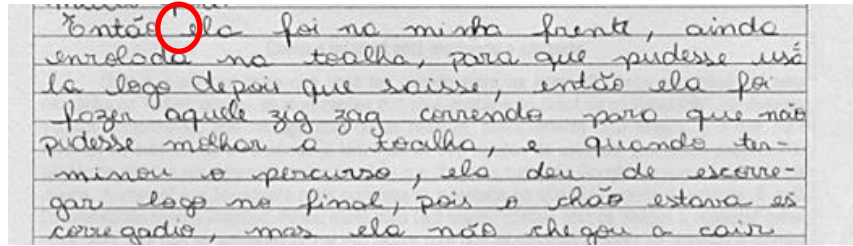 Então ela foi na minha frente, ainda
enrolada na toalha, para que pudesse usá
la logo depois que saisse, então ela foi
fazer aquele zig zag correndo para que não
pudesse molhar a toalha, e quando ter-
minou o percurso, ela deu de escorre-
gar logo no final, pois o chão estava es
corregadio, mas ela não chegou a cair